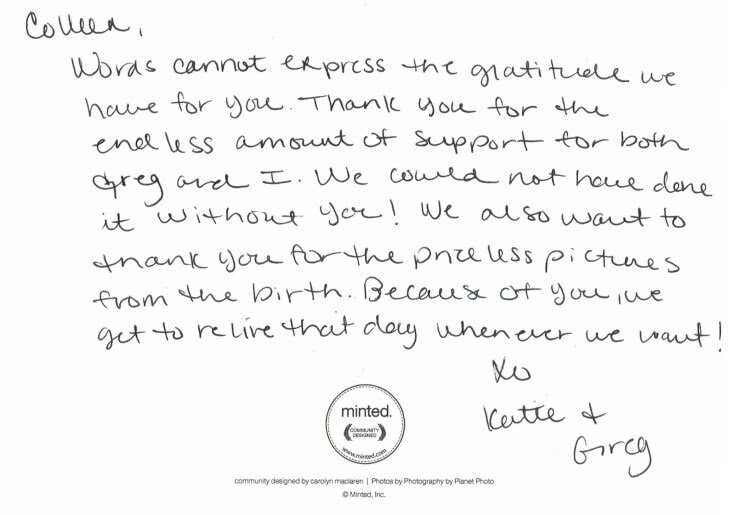 Colleen,
Words cannot express the gratitude we
have for you. Thank you for the
endless amount of support for both
Greg and I. We could not have done
it without you! We also want to
thank you for the priceless pictures
from the birth. Because of you, we
get to relive that day whenever we want!
XO
Katie &
Greg
minted.
COMMUNITY
DESIGNED
www.minted.com
community designed by carolyn maclaren | Photos by Photography by Planet Photo
© Minted, Inc.